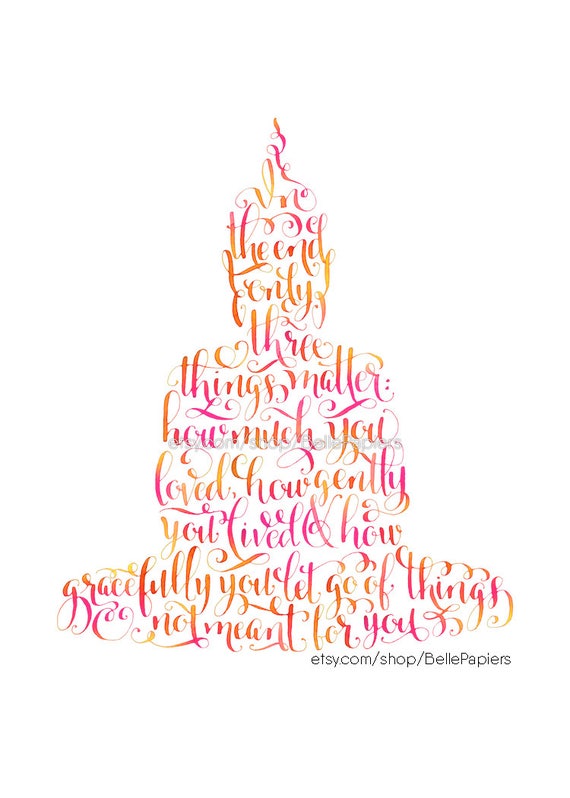 In
the end
only
three
things matter:
how much you
etsy.com/shop/BellePapiers
loved, how gently
you lived & how
gracefully you let go of things
not meant for you
etsy.com/shop/BellePapiers